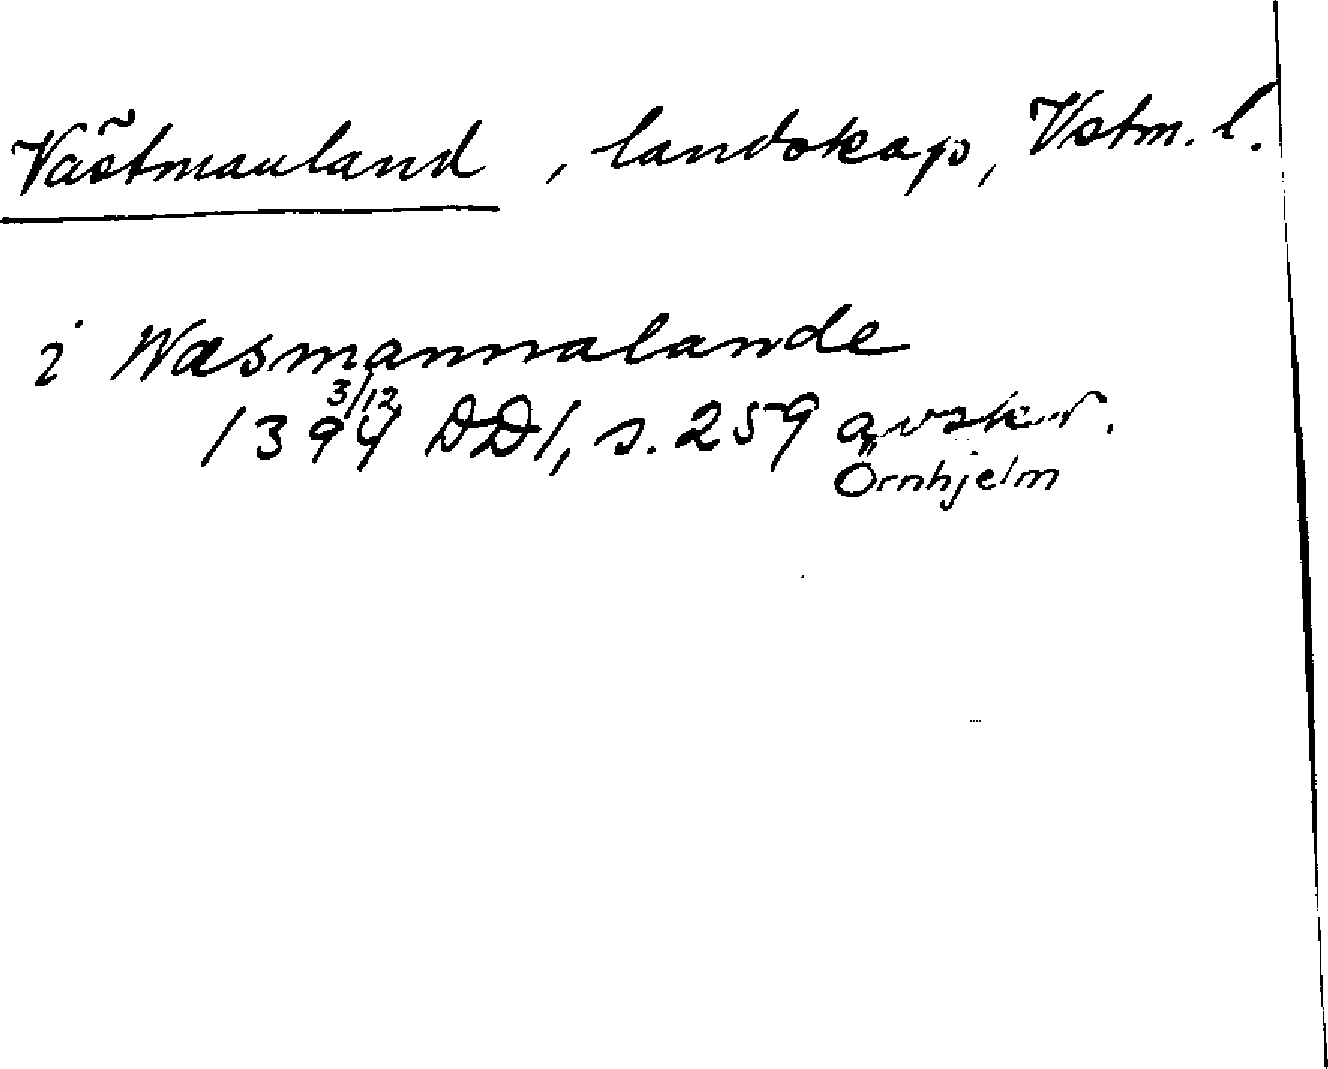 Västmanland, landskap, Vstm. l.
i Wæsmannalande
1394 3/12 DD1, s. 259 avskr.
Örnhjelm